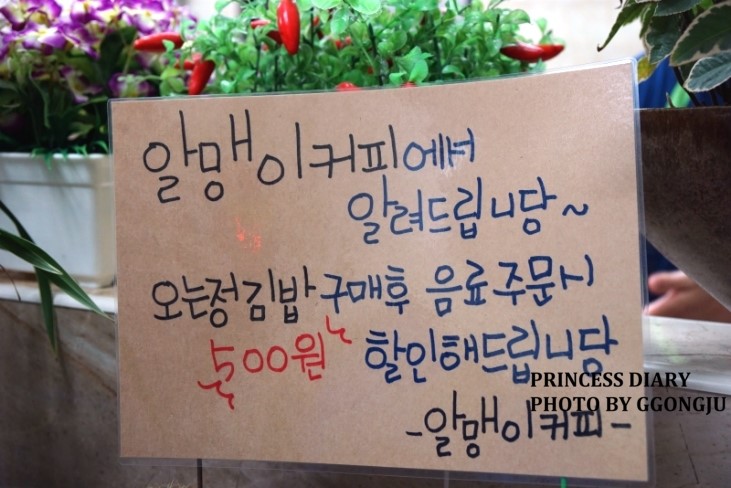 알맹이커피에서
알려드립니당~
오는정김밥 구매후 음료주문시
500원 할인해드립니당
-알맹이커피-
PRINCESS DIARY
PHOTO BY GGONGJU